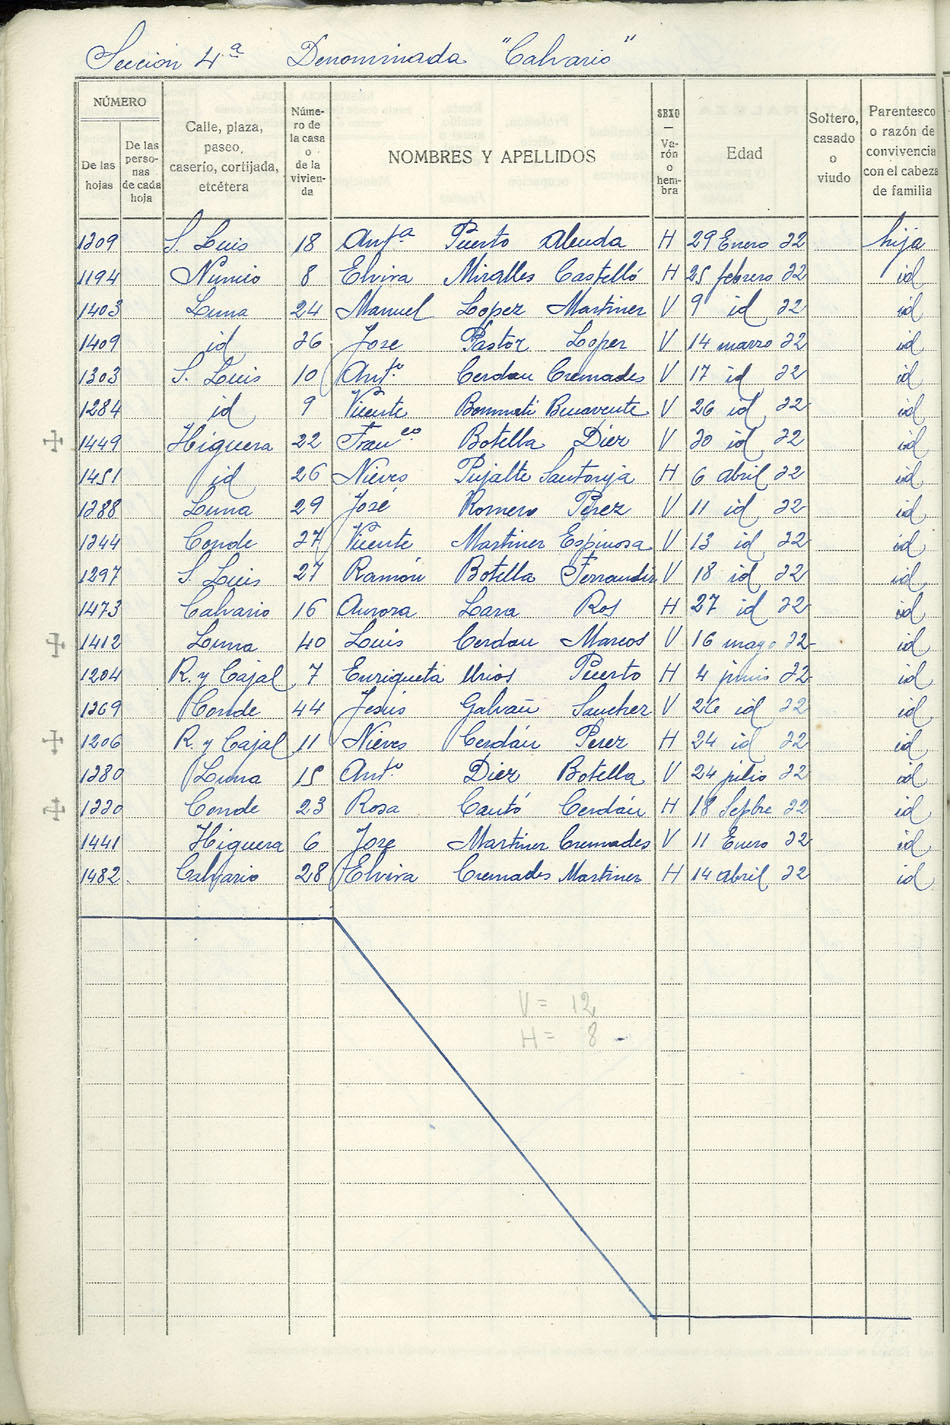 Sección 4ª Denominada "Calvario"
NÚMERO
De las hojas
De las perso-nas de cada hoja
Calle, plaza, paseo, caserío, cortijada, etcétera
Núme-ro de la casa o de la vivien-da
NOMBRES Y APELLIDOS
SEXO — Va-rón o hem-bra
Edad
Soltero, casado o viudo
Parentesco o razón de convivencia con el cabeza de familia
1309 S. Luis 18 Antª Puerto H 29 Enero 32 hija
1194 Nuncio 8 Elvira Miralles Castelló H 25 febrero 32 id
1403 Luna 24 Manuel Lopez Martinez V 9 id 32 id
1409 id 36 Jose Pastor Lopez V 14 marzo 32 id
1303 S. Luis 10 Antº Cerdan Cremades V 17 id 32 id
1284 id 9 Vicente Bonmati Benavente V 26 id 32 id
1449 Higuera 22 Franco Botella Diez V 30 id 32 id
1451 id 26 Nieves Pujalte Santonja H 6 abril 32 id
1388 Luna 29 José Romero Pérez V 11 id 32 id
1344 Conde 37 Vicente Martinez Espinosa V 13 id 32 id
1297 S. Luis 27 Ramón Botella Ferrandiz V 18 id 32 id
1473 Calvario 16 Aurora Lara Ros H 27 id 32 id
1412 Luna 40 Luis Cerdan Marcos V 16 mayo 32 id
1204 R. y Cajal 7 Enriqueta Urios Puerto H 4 junio 32 id
1369 Conde 44 Jesús Galvañ Sanchez V 26 id 32 id
1206 R. y Cajal 11 Nieves Cerdán Perez H 24 id 32 id
1380 Luna 15 Antº Diez Botella V 24 julio 32 id
1330 Conde 23 Rosa Cantó Cerdán H 18 Sepbre 32 id
1441 Higuera 6 Jose Martinez Cremades V 11 Enero 32 id
1482 Calvario 28 Elvira Cremades Martinez H 14 abril 32 id
V = 12
H = 8